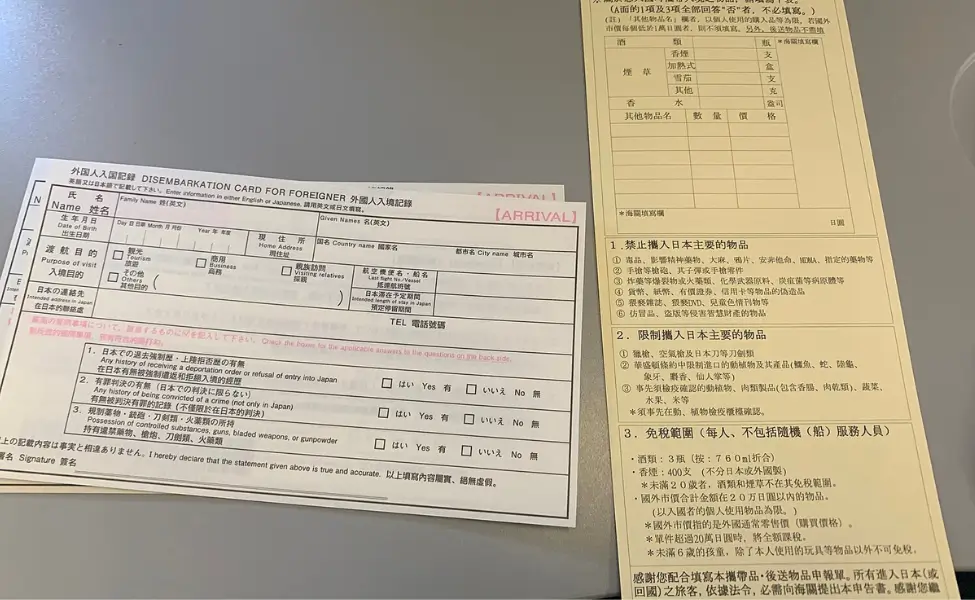 外国人入国記録 DISEMBARKATION CARD FOR FOREIGNER 外國人入境記錄
英語又は日本語で記載して下さい。Enter information in either English or Japanese. 請用英文或日文填寫。
【ARRIVAL】
氏 名
Name 姓名
Family Name 姓(英文)
Given Names 名(英文)
生年月日
Date of Birth
出生日期
Day 日 日期 Month 月 月份 Year 年 年度
現 住 所
Home Address
現住址
国名 Country name 國家名
都市名 City name 城市名
渡航目的
Purpose of visit
入境目的
観光
Tourism
旅遊
商用
Business
商務
親族訪問
Visiting relatives
探親
その他
Others
其他目的
(
)
航空機便名・船名
Last flight No./Vessel
抵達航班號
日本滞在予定期間
Intended length of stay in Japan
預定停留期間
日本の連絡先
Intended address in Japan
在日本的聯絡處
TEL 電話號碼
Check the boxes for the applicable answers to the questions on the back side.
1. 日本での退去強制歴・上陸拒否歴の有無
Any history of receiving a deportation order or refusal of entry into Japan
在日本有無被強制遣返和拒絕入境的經歷
はい Yes 有 いいえ No 無
2. 有罪判決の有無(日本での判決に限らない)
Any history of being convicted of a crime (not only in Japan)
有無被判決有罪的記錄(不僅限於在日本的判決)
はい Yes 有 いいえ No 無
3. 規制薬物・銃砲・刀剣類・火薬類の所持
Possession of controlled substances, guns, bladed weapons, or gunpowder
持有違禁藥物、槍炮、刀劍類、火藥類
はい Yes 有 いいえ No 無
上の記載内容は事実と相違ありません。I hereby declare that the statement given above is true and accurate. 以上填寫內容屬實、絕無虛假。
署名 Signature 簽名
(A面的1項及3項全部回答"否"者,不必填寫。)
(註)「其他物品名」欄者,以個人使用的購入品等為限,若國外
市價每個低於1萬日圓者,則不須填寫。另外,後送物品不需填
酒 類 瓶
*海關填寫欄
煙 草
香煙 支
加熱式 盒
雪茄 支
其他 克
香 水 盎司
其他物品名 數 量 價 格
*海關填寫欄
日圓
1.禁止攜入日本主要的物品
① 毒品、影響精神藥物、大麻、鴉片、安非他命、MDMA、指定的藥物等
② 手槍等槍砲、其子彈或手槍零件
③ 炸藥等爆裂物或火藥類、化學武器原料、炭疽菌等病原體等
④ 貨幣、紙幣、有價證券、信用卡等物品的偽造品
⑤ 猥褻雜誌、猥褻DVD、兒童色情刊物等
⑥ 仿冒品、盜版等侵害智慧財產的物品
2.限制攜入日本主要的物品
① 獵槍、空氣槍及日本刀等刀劍類
② 華盛頓條約中限制進口的動植物及其產品(鱷魚、蛇、陸龜、
象牙、麝香、仙人掌等)
③ 事先須檢疫確認的動植物、肉類製品(包含香腸、肉乾類)、蔬菜、
水果、米等
*須事先在動、植物檢疫櫃檯確認。
3.免稅範圍(每人、不包括隨機(船)服務人員)
・酒類:3瓶(按:760ml折合)
・香煙:400支 (不分日本或外國製)
*未滿20歲者,酒類和煙草不在其免稅範圍。
・國外市價合計金額在20万日圓以內的物品。
(以入國者的個人使用物品為限。)
*國外市價指的是外國通常零售價(購買價格)。
*單件超過20萬日圓時,將全額課稅。
*未滿6歲的孩童,除了本人使用的玩具等物品以外不可免稅。
感謝您配合填寫本攜帶品・後送物品申報單。所有進入日本(或
回國)之旅客,依據法令,必需向海關提出本申告書。感謝您繼